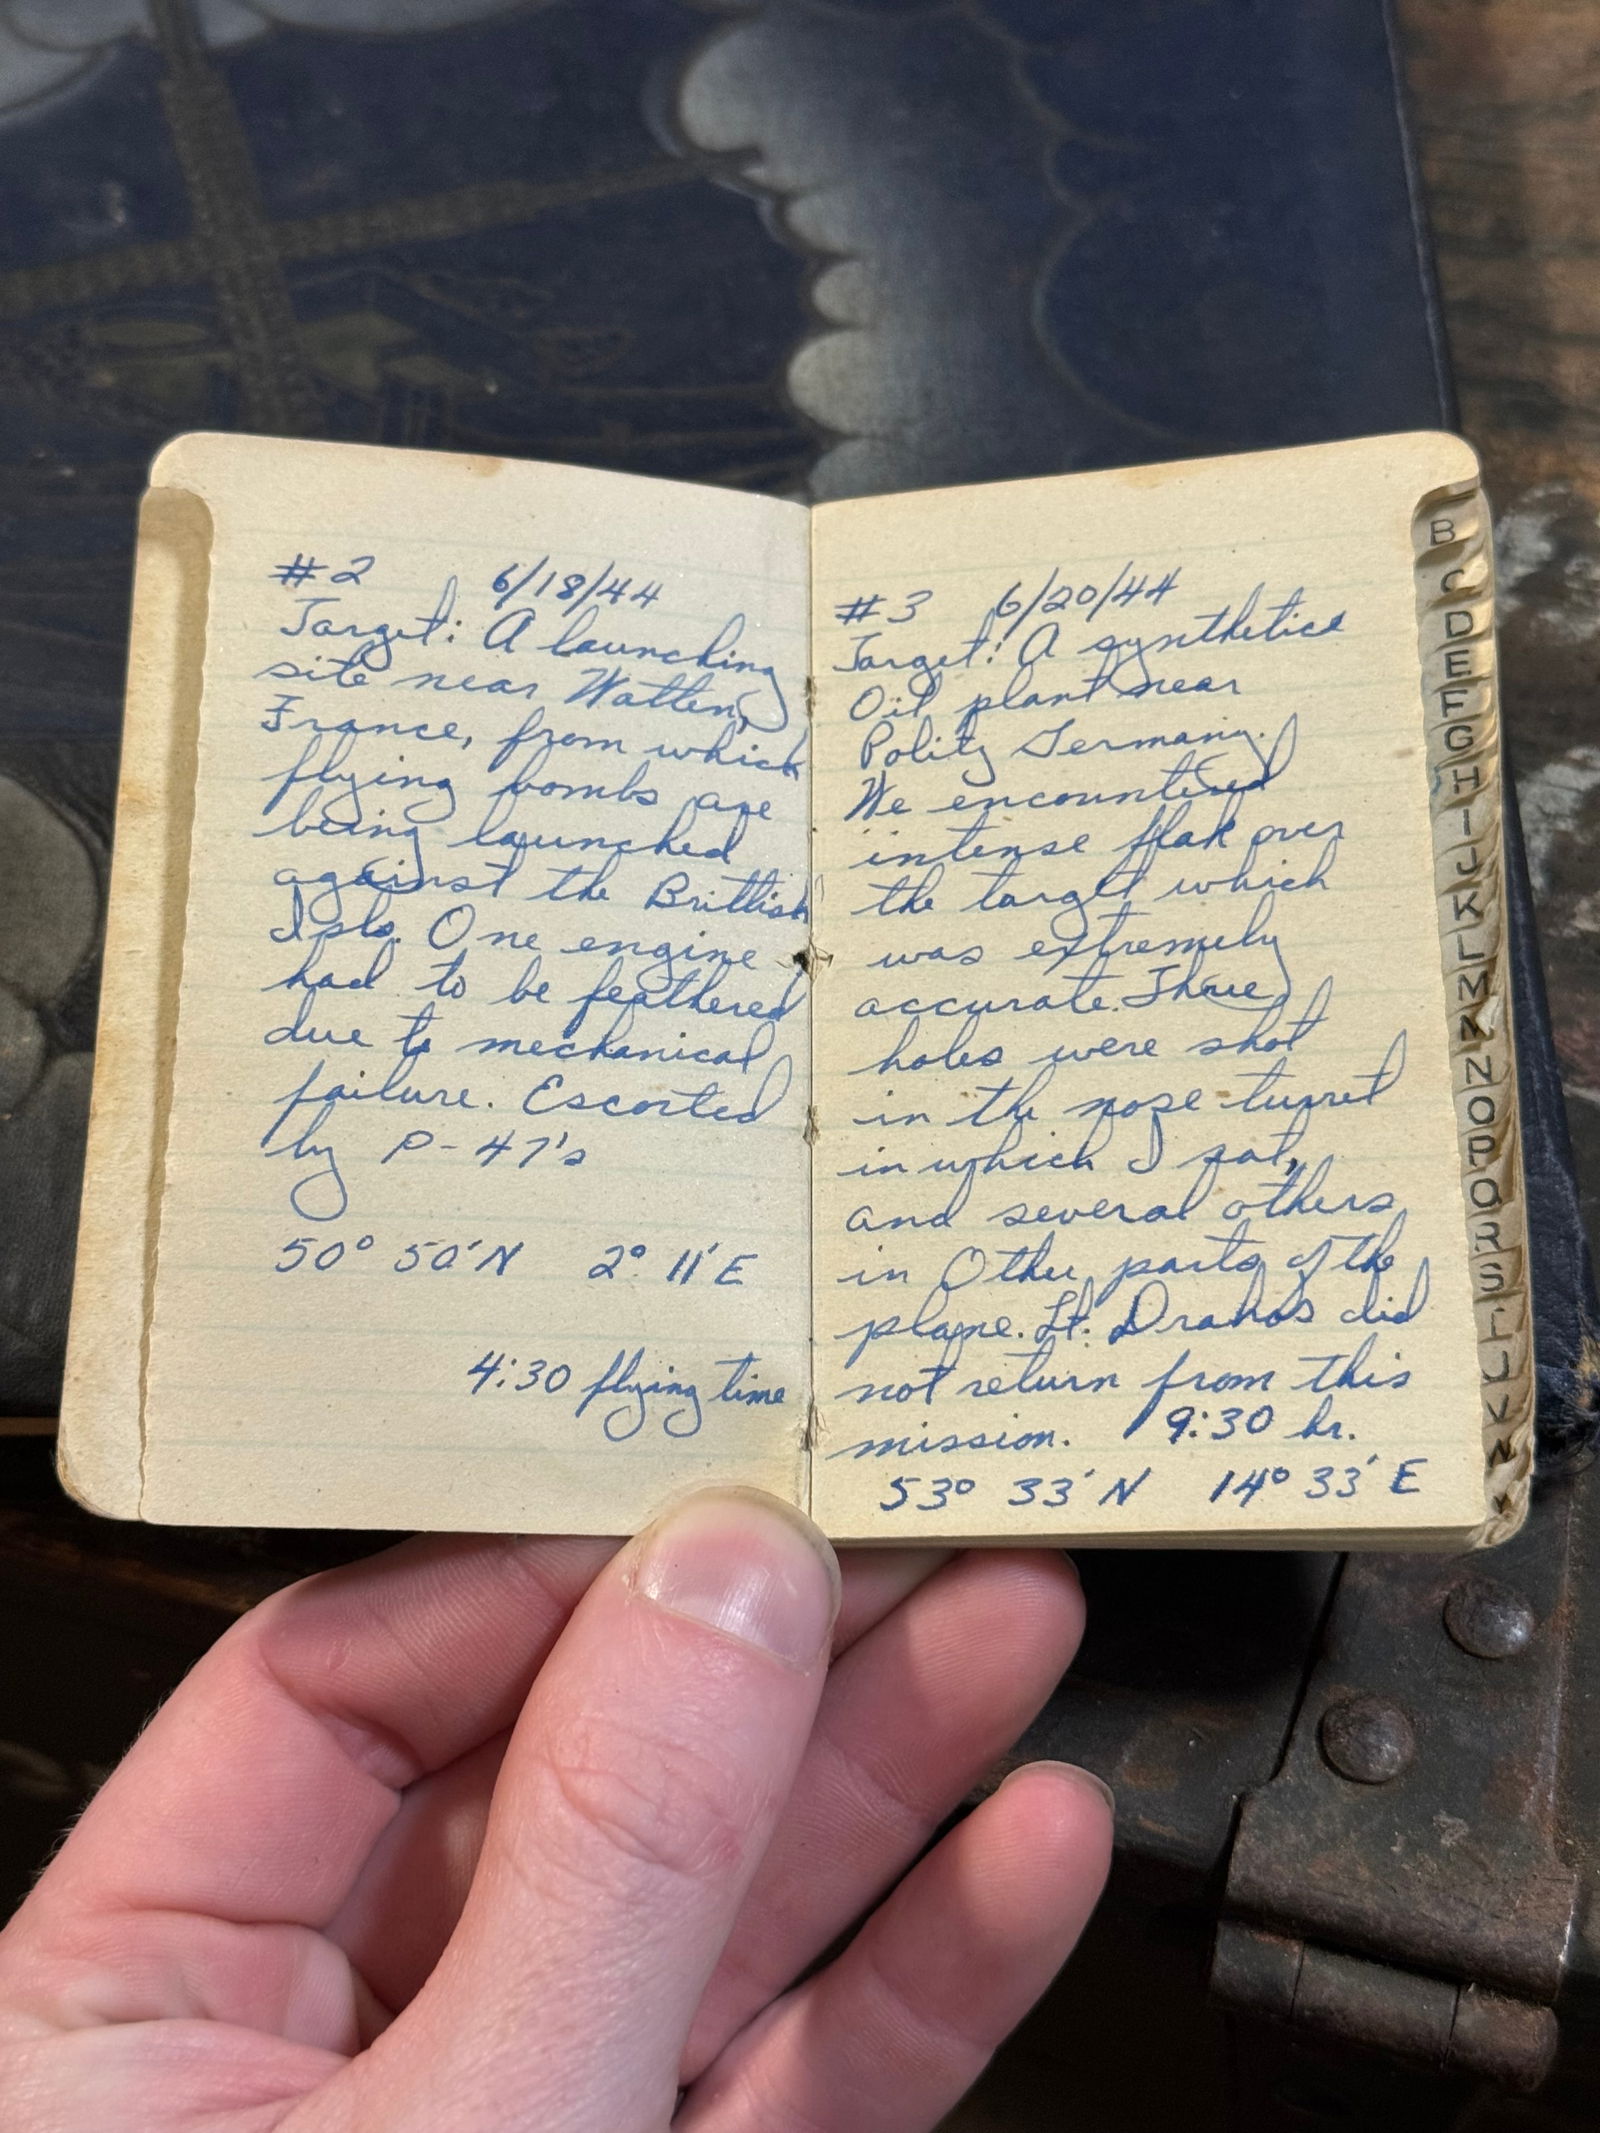 #2 6/18/44
Target: A launching
site near Watten,
France, from which
flying bombs are
being launched
against the Brittish
Isls. One engine
had to be feathered
due to mechanical
failure. Escorted
by P-47's
50° 50'N 2° 11'E
4:30 flying time
#3 6/20/44
Target: A synthetice
Oil plant near
Politz Germany.
We encountered
intense flak over
the target which
was extremely
accurate. Three
holes were shot
in the nose turret
in which I sat,
and several others
in Other parts of the
plane. Lt. Drahos did
not return from this
mission. 9:30 hr.
53° 33' N 14° 33' E
B
C
D
E
F
G
H
I
J
K
L
M
N
O
P
Q
R
S
T
U
V